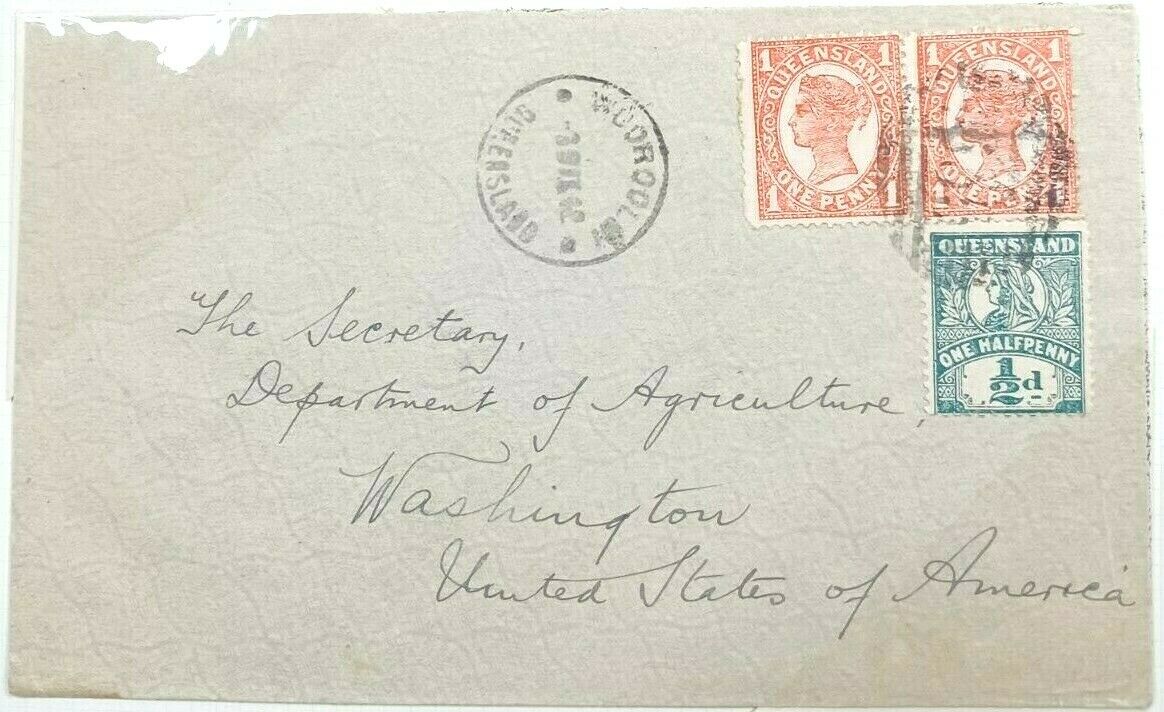 WOOROOLIN
QUEENSLAND
1 QUEENSLAND 1
1 ONE PENNY 1
1 QUEENSLAND 1
1 ONE PENNY 1
QUEENSLAND
ONE HALFPENNY
½d
The Secretary,
Department of Agriculture,
Washington
United States of America